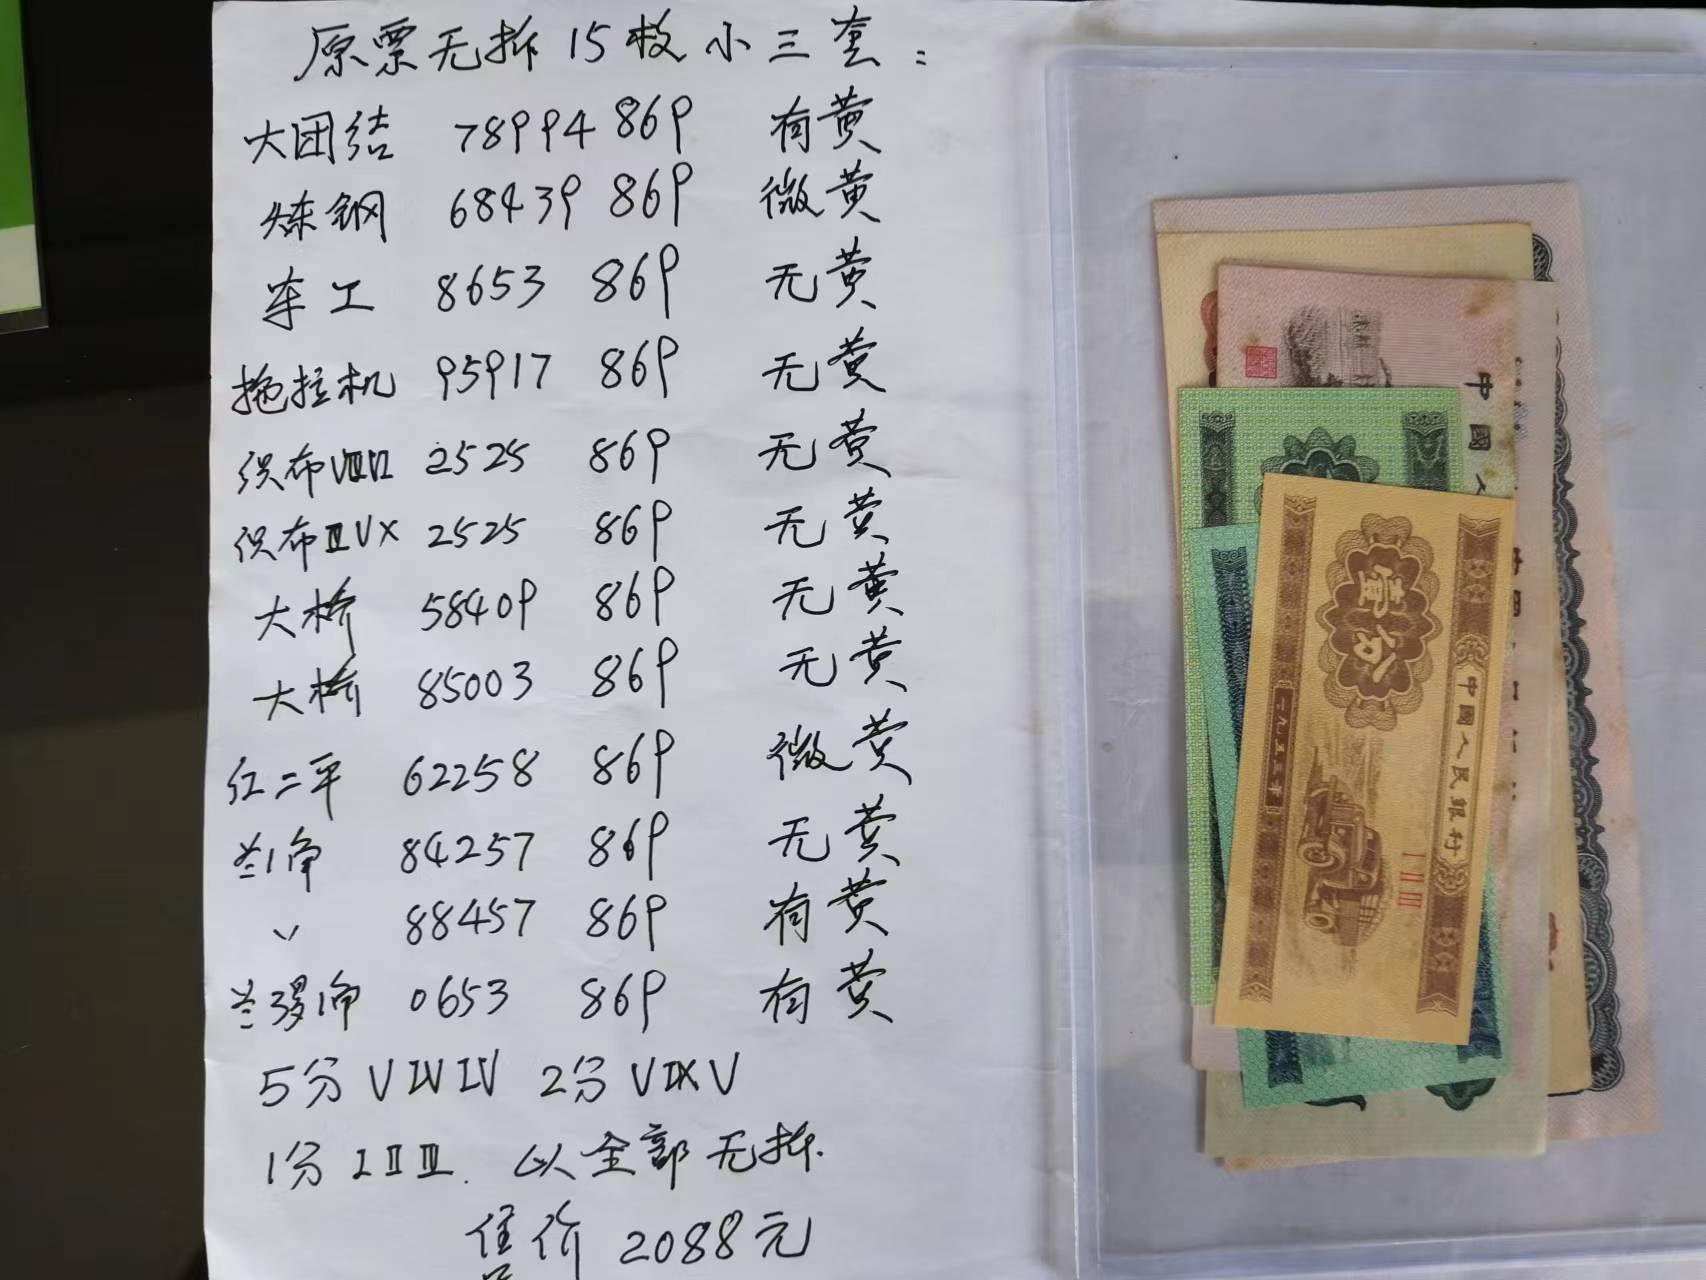 原票无折15枚小三套：
大团结 78994869 有黄
炼钢 68439869 微黄
车工 8653 869 无黄
拖拉机 95917 869 无黄
织布VIIIVI 2525 869 无黄
织布ⅡVX 2525 869 无黄
大桥 58409 869 无黄
大桥 85003 869 无黄
红二平 62258 869 微黄
兰1角 84257 869 无黄
〃 88457 869 有黄
兰3罗1角 0653 869 有黄
5分 V IV IV 2分 V IX V
1分 I II III. 以全部无折.
售价 2088元
中國人
壹分
中國人民銀行
一九五三年
I II III